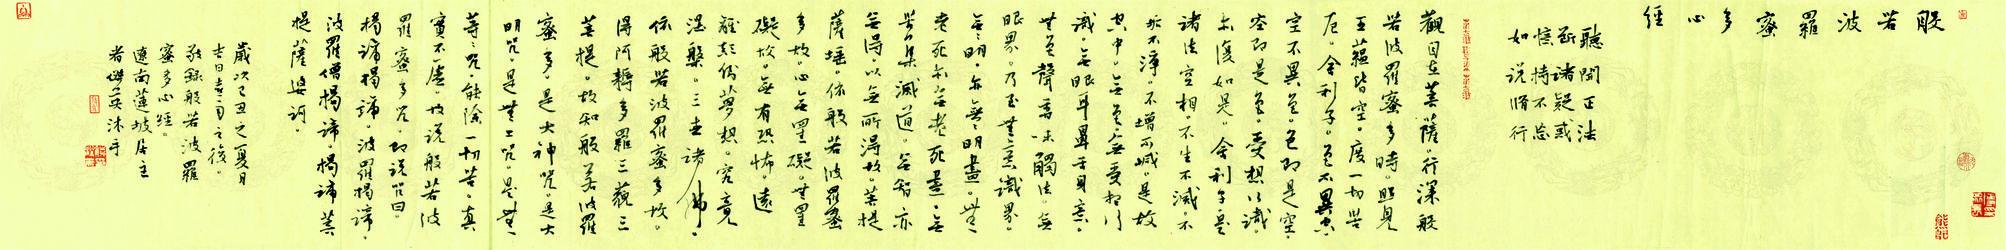 般若波羅蜜多心經
聽聞正法
斷諸疑或
憶持不忘
如說脩行
觀自在菩薩。行深般
若波羅蜜多時。照見
五蘊皆空。度一切苦
厄。舍利子。色不異空。
空不異色。色即是空。
空即是色。受想行識。
亦復如是。舍利子。是
諸法空相。不生不滅。不
垢不淨。不增不減。是故
空中。無色。無受想行
識。無眼耳鼻舌身意。
無色聲香味觸法。無
眼界。乃至無意識界。
無無明。亦無無明盡。無
老死。亦無老死盡。無
苦集滅道。無智亦
無得。以無所得故。菩提
薩埵。依般若波羅蜜
多故。心無罣礙。無罣
礙故。無有恐怖。遠
離顛倒夢想。究竟
涅槃。三世諸佛。
依般若波羅蜜多故。
得阿耨多羅三藐三
菩提。故知般若波羅
蜜多。是大神咒。是大
明咒。是無上咒。是無
等等咒。能除一切苦。真
實不虛。故說般若波
羅蜜多咒。即說咒曰。
揭諦揭諦。波羅揭諦。
波羅僧揭諦。揭諦菩
提薩婆訶。
歲次己丑之夏月
吉日
之後。
敬錄般若波羅
蜜多心經。
遼南蓮坡居主
者
沐手